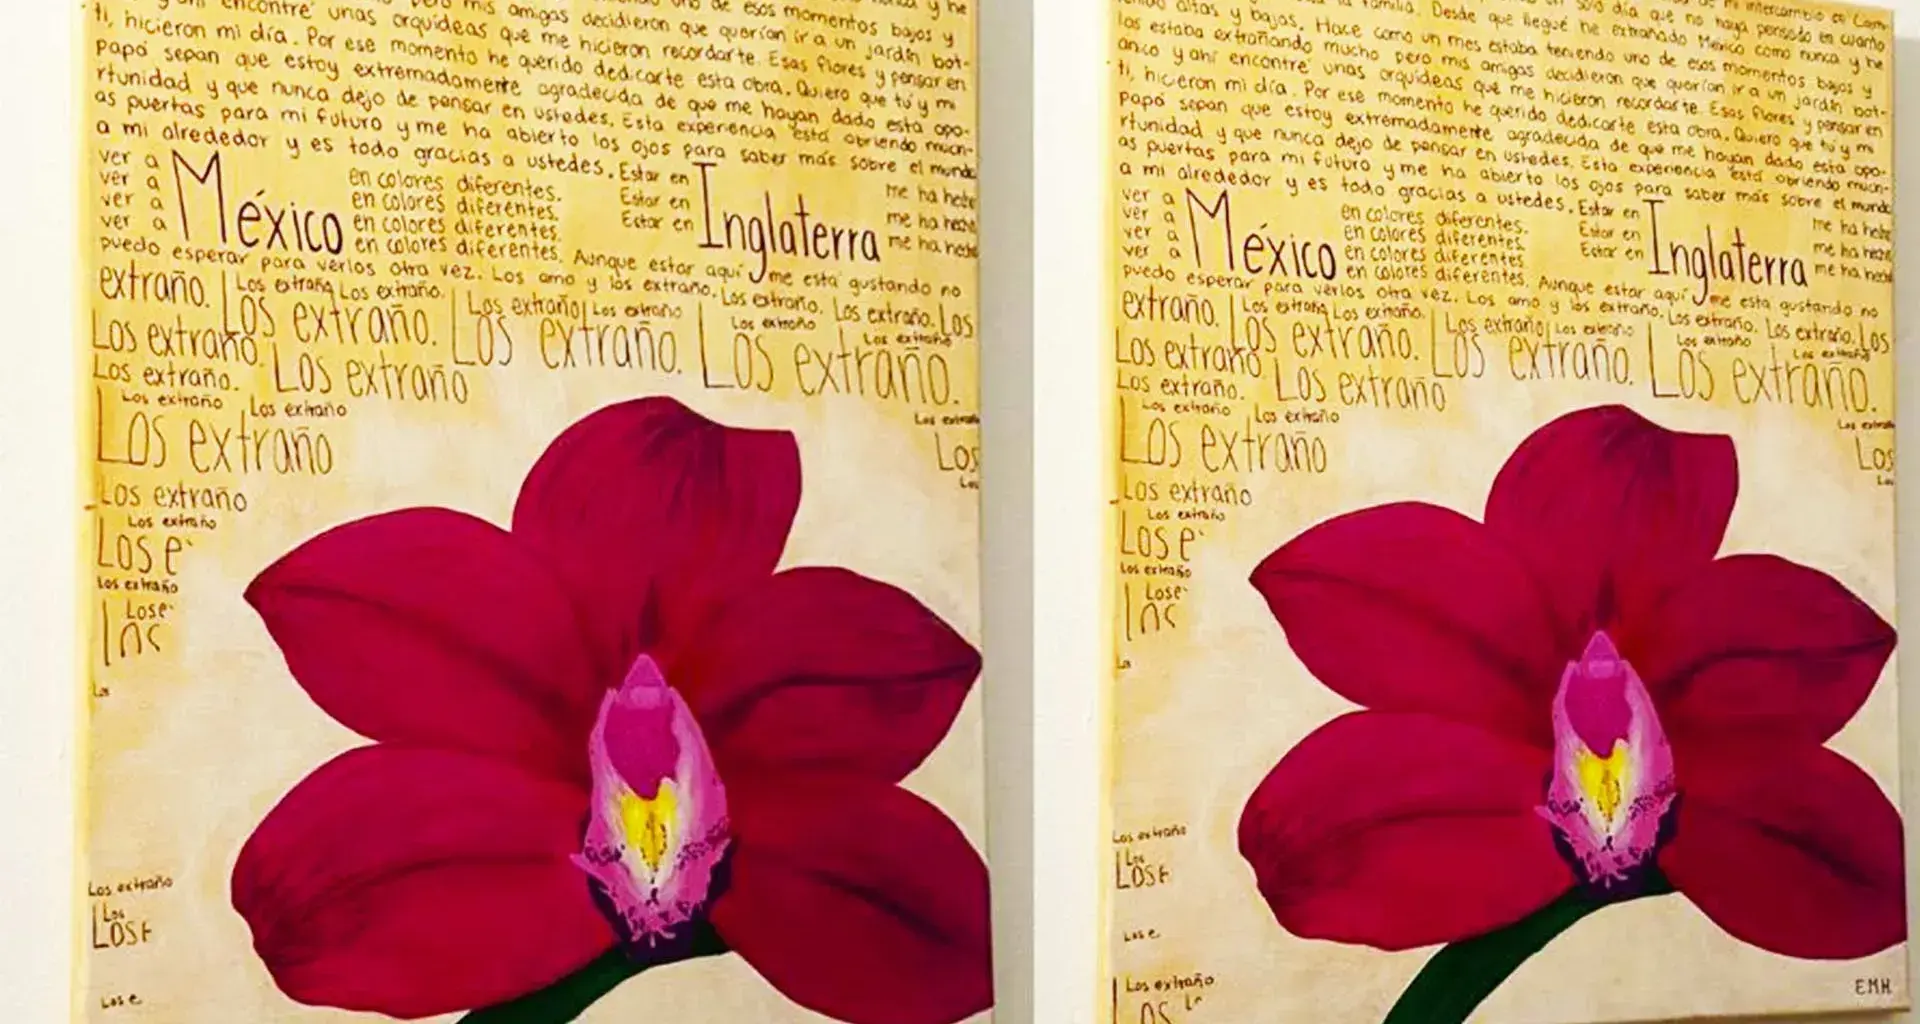 nunca y he
pero mis amigas decidieron que querían ir a un jardín bot-
y ahí encontré unas orquídeas que me hicieron recordarte. Esas flores y pensar en
ti, hicieron mi día. Por ese momento he querido dedicarte esta obra. Quiero que tú y mi
Papá sepan que estoy extremadamente agradecida de que me hayan dado esta opo-
rtunidad y que nunca dejo de pensar en ustedes. Esta experiencia está abriendo much-
as puertas para mi futuro y me ha abierto los ojos para saber más sobre el mundo
a mi alrededor y es todo gracias a ustedes. Estar en
ver a México en colores diferentes. Estar en Inglaterra me ha hecho
ver a en colores diferentes. Estar en me ha hecho
ver a en colores diferentes. me ha hecho
ver a
puedo esperar para verlos otra vez. Los amo y los extraño. Aunque estar aquí me está gustando no
extraño. Los extraño Los extraño. Los extraño Los extraño Los extraño. Los extraño. Los
Los extraño. Los extraño. Los extraño. Los extraño Los extraño
Los extraño. Los extraño Los extraño.
Los extraño Los extraño Los extraño
Los extraño Los
Los extraño Los
Los extraño
Los e
Los extraño
Los e
Los
Los
Los extraño
Los
LOSE
Los e
mi intercambio en
solo día que no haya pensado en cuanto
la familia. Desde que llegué he extrañado México como nunca y he
tenido altas y bajas. Hace como un mes estaba teniendo uno de esos momentos bajos y
los estaba extrañando mucho pero mis amigas decidieron que querían ir a un jardín bot-
ánico y ahí encontré unas orquídeas que me hicieron recordarte. Esas flores y pensar en
ti, hicieron mi día. Por ese momento he querido dedicarte esta obra. Quiero que tú y mi
Papá sepan que estoy extremadamente agradecida de que me hayan dado esta opo-
rtunidad y que nunca dejo de pensar en ustedes. Esta experiencia está abriendo much-
as puertas para mi futuro y me ha abierto los ojos para saber más sobre el mundo
a mi alrededor y es todo gracias a ustedes. Estar en
ver a México en colores diferentes. Estar en Inglaterra me ha hecho
ver a en colores diferentes. Estar en me ha hecho
ver a en colores diferentes. me ha hecho
ver a
puedo esperar para verlos otra vez. Los amo y los extraño. Aunque estar aquí me está gustando no
extraño. Los extraño Los extraño. Los extraño Los extraño Los extraño. Los extraño. Los
Los extraño. Los extraño. Los extraño. Los extraño Los extraño
Los extraño. Los extraño Los extraño.
Los extraño Los extraño Los extraño
Los extraño Los
Los extraño Los
Los extraño
Los e
Los extraño
Los e
Los
Los
Los extraño
Los
LOSE
Los e
Los extraño
Los
EMH